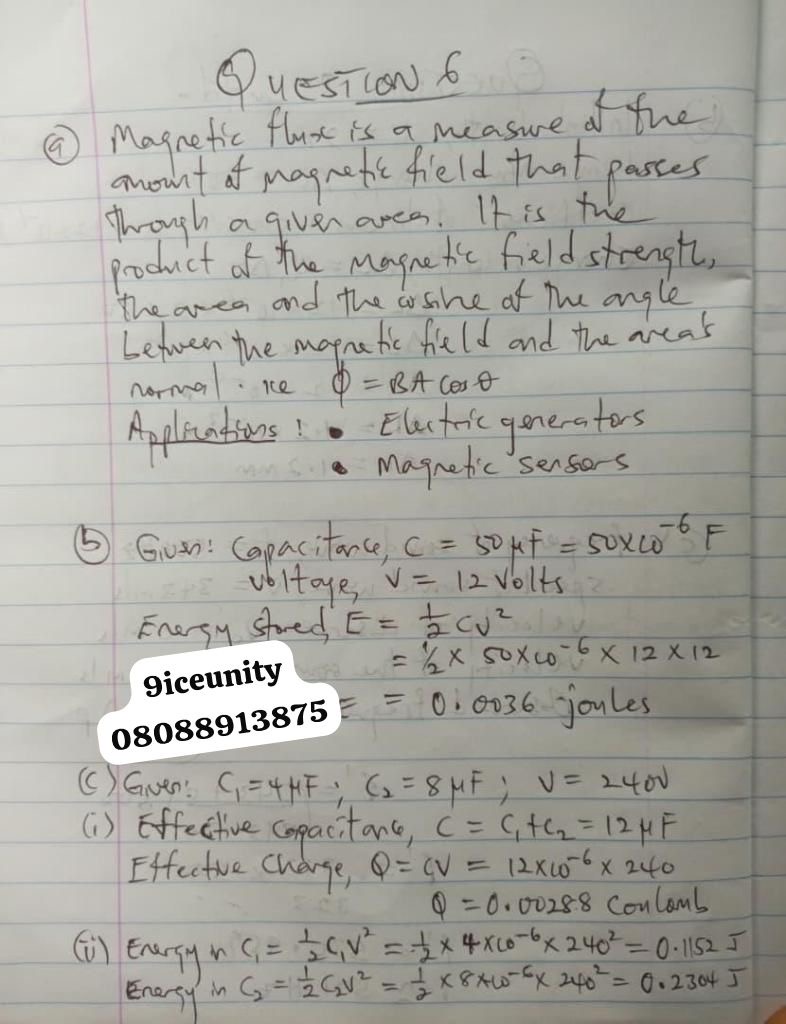 QUESTION 6
(a) Magnetic flux is a measure of the
amount of magnetic field that passes
through a given area. It is the
product of the magnetic field strength,
the area and the cosine of the angle
between the magnetic field and the area's
normal. ie Φ = BA cos θ
Applications: • Electric generators
• Magnetic sensors
(b) Given: Capacitance, C = 50 μF = 50×10⁻⁶ F
voltage, V = 12 Volts
Energy stored, E = ½ CV²
= ½ × 50×10⁻⁶ × 12 × 12
9iceunity
08088913875
= = 0.0036 joules
(c) Given: C₁ = 4μF ; C₂ = 8μF ; V = 240V
(i) Effective capacitance, C = C₁+C₂ = 12μF
Effective Charge, Q = CV = 12×10⁻⁶ × 240
Q = 0.00288 Coulomb
(ii) Energy in C₁ = ½C₁V² = ½ × 4×10⁻⁶ × 240² = 0.1152 J
Energy in C₂ = ½C₂V² = ½ × 8×10⁻⁶ × 240² = 0.2304 J